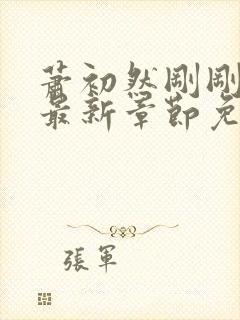 蕭初然剛剛
最新章節免
張軍